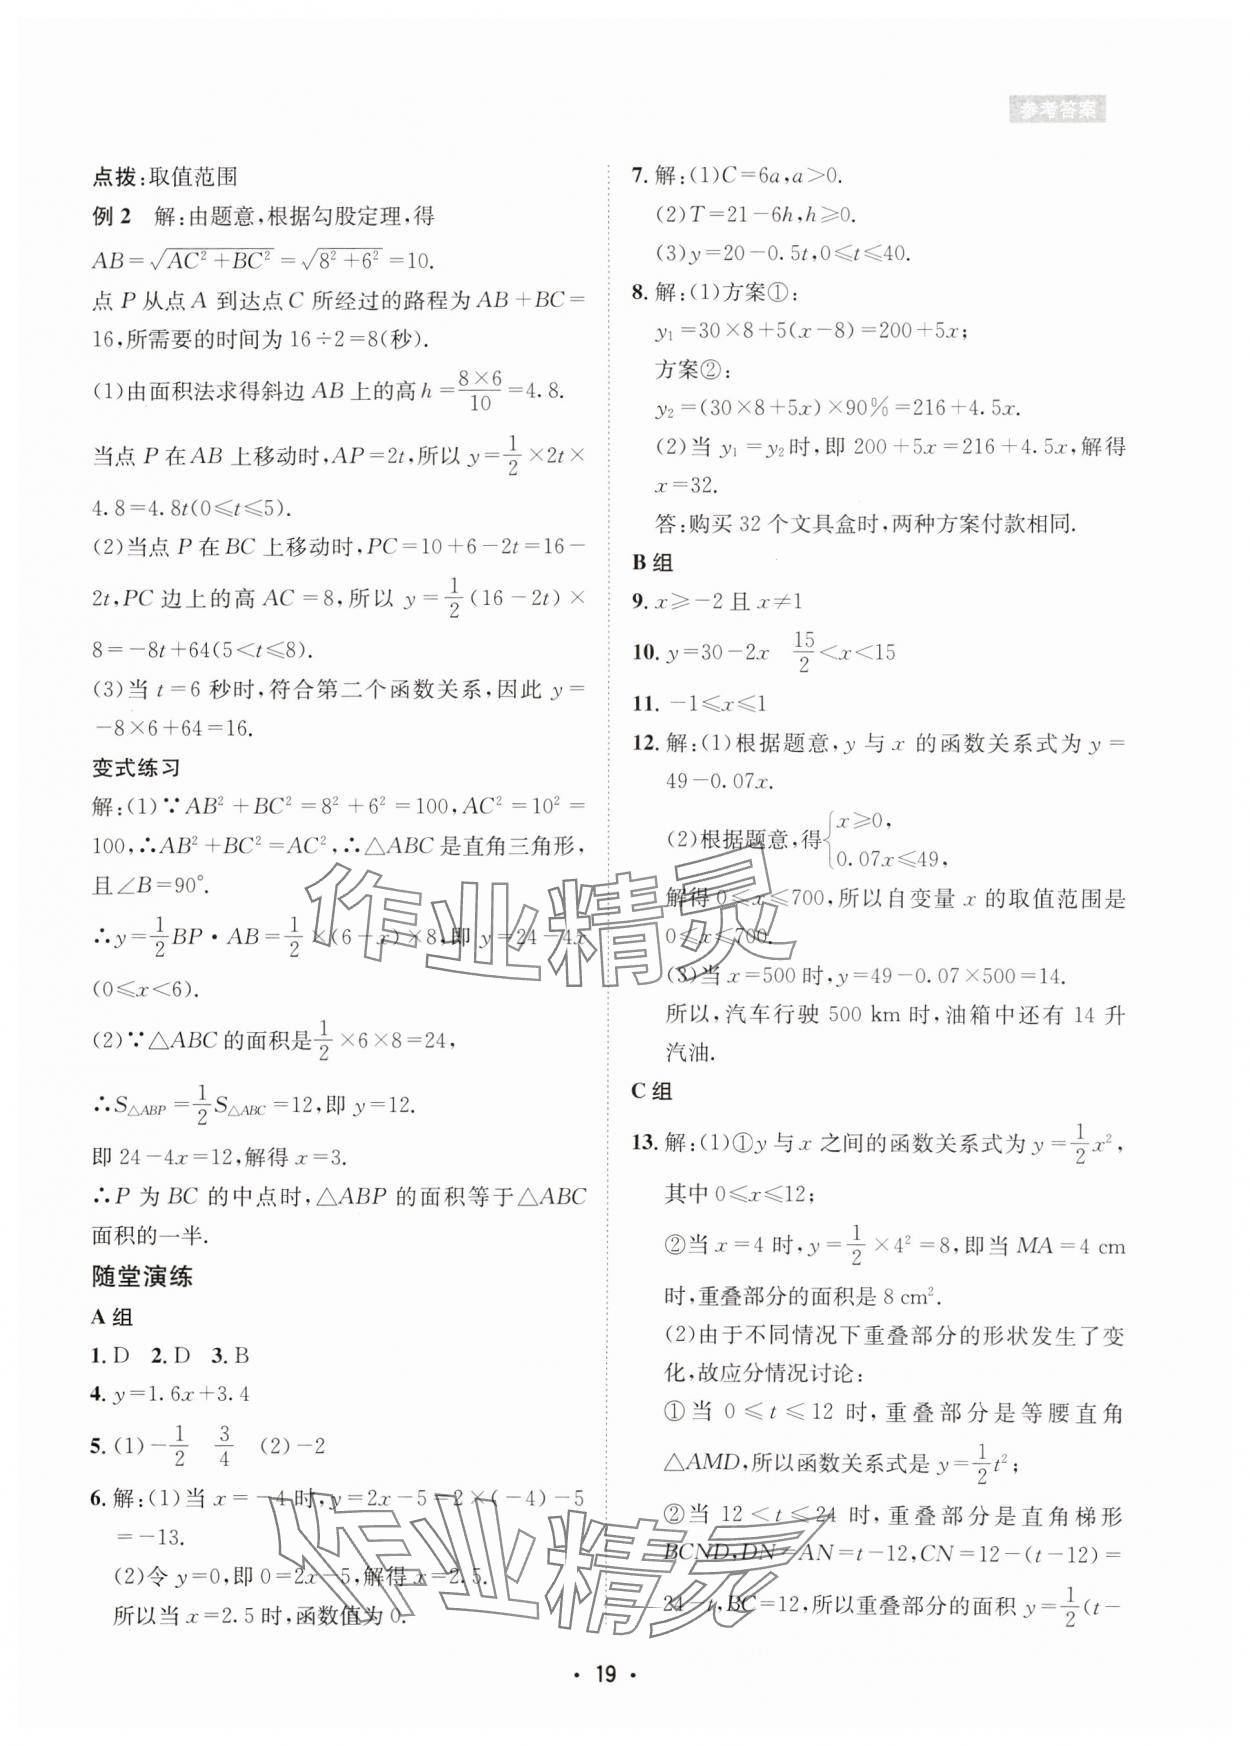 参考答案
点拨:取值范围
例 2　解:由题意,根据勾股定理,得
AB=√(AC²+BC²)=√(8²+6²)=10.
点 P 从点 A 到达点 C 所经过的路程为 AB+BC=
16,所需要的时间为 16÷2=8(秒).
(1)由面积法求得斜边 AB 上的高 h=8×6/10=4.8.
当点 P 在 AB 上移动时,AP=2t,所以 y=1/2×2t×
4.8=4.8t(0≤t≤5).
(2)当点 P 在 BC 上移动时,PC=10+6-2t=16-
2t,PC 边上的高 AC=8,所以 y=1/2(16-2t)×
8=-8t+64(5<t≤8).
(3)当 t=6 秒时,符合第二个函数关系,因此 y=
-8×6+64=16.
变式练习
解:(1)∵AB²+BC²=8²+6²=100,AC²=10²=
100,∴AB²+BC²=AC²,∴△ABC 是直角三角形,
且∠B=90°.
∴y=1/2BP·AB=1/2×(6-x)×8,即 y=24-4x
(0≤x<6).
(2)∵△ABC 的面积是1/2×6×8=24,
∴S△ABP=1/2S△ABC=12,即 y=12.
即 24-4x=12,解得 x=3.
∴P 为 BC 的中点时,△ABP 的面积等于△ABC
面积的一半.
随堂演练
A 组
1. D　2. D　3. B
4. y=1.6x+3.4
5. (1)-1/2　3/4　(2)-2
6. 解:(1)当 x=-4 时,y=2x-5=2×(-4)-5
=-13.
(2)令 y=0,即 0=2x-5,解得 x=2.5.
所以当 x=2.5 时,函数值为 0.
7. 解:(1)C=6a,a>0.
(2)T=21-6h,h≥0.
(3)y=20-0.5t,0≤t≤40.
8. 解:(1)方案①:
y₁=30×8+5(x-8)=200+5x;
方案②:
y₂=(30×8+5x)×90%=216+4.5x.
(2)当 y₁=y₂时,即 200+5x=216+4.5x,解得
x=32.
答:购买 32 个文具盒时,两种方案付款相同.
B 组
9. x≥-2 且 x≠1
10. y=30-2x　15/2<x<15
11. -1≤x≤1
12. 解:(1)根据题意,y 与 x 的函数关系式为 y=
49-0.07x.
(2)根据题意,得{x≥0,
0.07x≤49,
解得 0≤x≤700,所以自变量 x 的取值范围是
0≤x≤700.
(3)当 x=500 时,y=49-0.07×500=14.
所以,汽车行驶 500 km 时,油箱中还有 14 升
汽油.
C 组
13. 解:(1)①y 与 x 之间的函数关系式为 y=1/2x²,
其中 0≤x≤12;
②当 x=4 时,y=1/2×4²=8,即当 MA=4 cm
时,重叠部分的面积是 8 cm².
(2)由于不同情况下重叠部分的形状发生了变
化,故应分情况讨论:
①当 0≤t≤12 时,重叠部分是等腰直角
△AMD,所以函数关系式是 y=1/2t²;
②当 12<t≤24 时,重叠部分是直角梯形
BCND,DN=AN=t-12,CN=12-(t-12)=
24-t,BC=12,所以重叠部分的面积 y=1/2(t-
作业精灵
作业精灵
· 19 ·